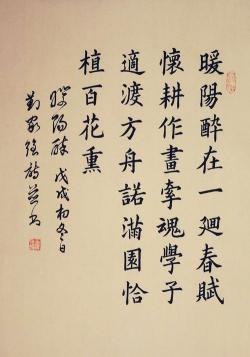 暖陽醉在一廻春賦
懷耕作畫牽魂學子
適渡方舟諾滿園恰
植百花熏
暖陽醉 戊戌初冬日
劉家強詩并書